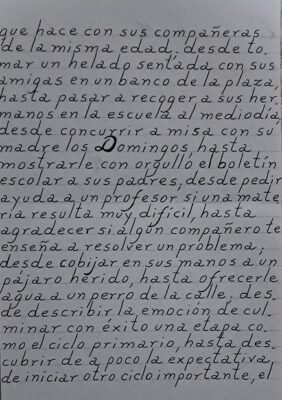 que hace con sus compañeras
de la misma edad; desde to.
mar un helado sentada con sus
amigas en un banco de la plaza,
hasta pasar a recoger a sus her.
manos en la escuela al mediodía,
desde concurrir a misa con su
madre los Domingos, hasta
mostrarle con orgullo el boletín
escolar a sus padres; desde pedir
ayuda a un profesor si una mate
ria resulta muy difícil, hasta
agradecer si algún compañero te
enseña a resolver un problema;
desde cobijar en sus manos a un
pájaro herido, hasta ofrecerle
agua a un perro de la calle; des.
de describir la emoción de cul.
minar con éxito una etapa co.
mo el ciclo primario, hasta des.
cubrir de a poco la expectativa,
de iniciar otro ciclo importante, el